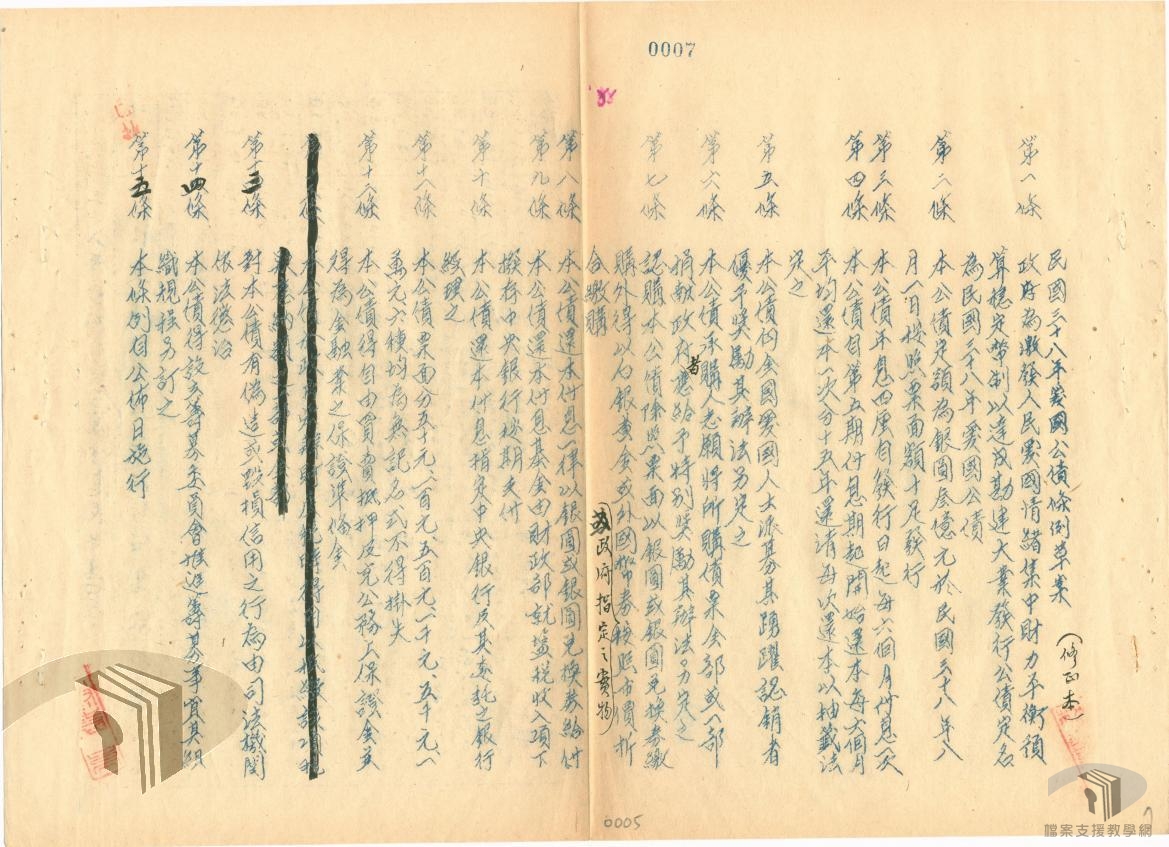 0007
民國三十八年愛國公債條例草案 (修正本)
第一條 政府為激發人民愛國情緒集中財力平衡預
算穩定幣制以達成勘建大業發行公債定名
為民國三十八年愛國公債
第二條 本公債定額為銀圓叁億元於民國三十八年八
月一日按照票面額十足發行
第三條 本公債年息四厘自發行日起每六個月付息一次
第四條 本公債自第五期付息期起開始還本每六個月
平均還本一次分十五年還清每次還本以抽籤法
定之
第五條 本公債向全國愛國人士派募其踴躍認銷者
優予獎勵其辦法另定之
第六條 本公債承購人志願將所購債票全部或一部
捐獻政府者應給予特別獎勵其辦法另定之
第七條 認購本公債除照票面以銀圓或銀圓兌換券繳
購外得以白銀黃金或外國幣券及政府指定之實物按照市價折
合繳購
第八條 本公債還本付息一律以銀圓或銀圓兌換券給付
第九條 本公債還本付息基金由財政部就鹽稅收入項下
撥存中央銀行按期支付
第十條 本公債還本付息指定中央銀行及其委託之銀行
經理之
第十一條 本公債票面分五十元、一百元、五百元、一千元、五千元、一
萬元六種均為無記名式不得掛失
第十二條 本公債得自由買賣抵押及充公務上保證金並
得為金融業之保證準備金
第十三條 對本公債有偽造或毀損信用之行為由司法機關
依法懲治
第十四條 本公債得設立籌募委員會推進籌募事宜其組
織規程另訂之
第十五條 本條例自公佈日施行
0005
檔案支援教學網